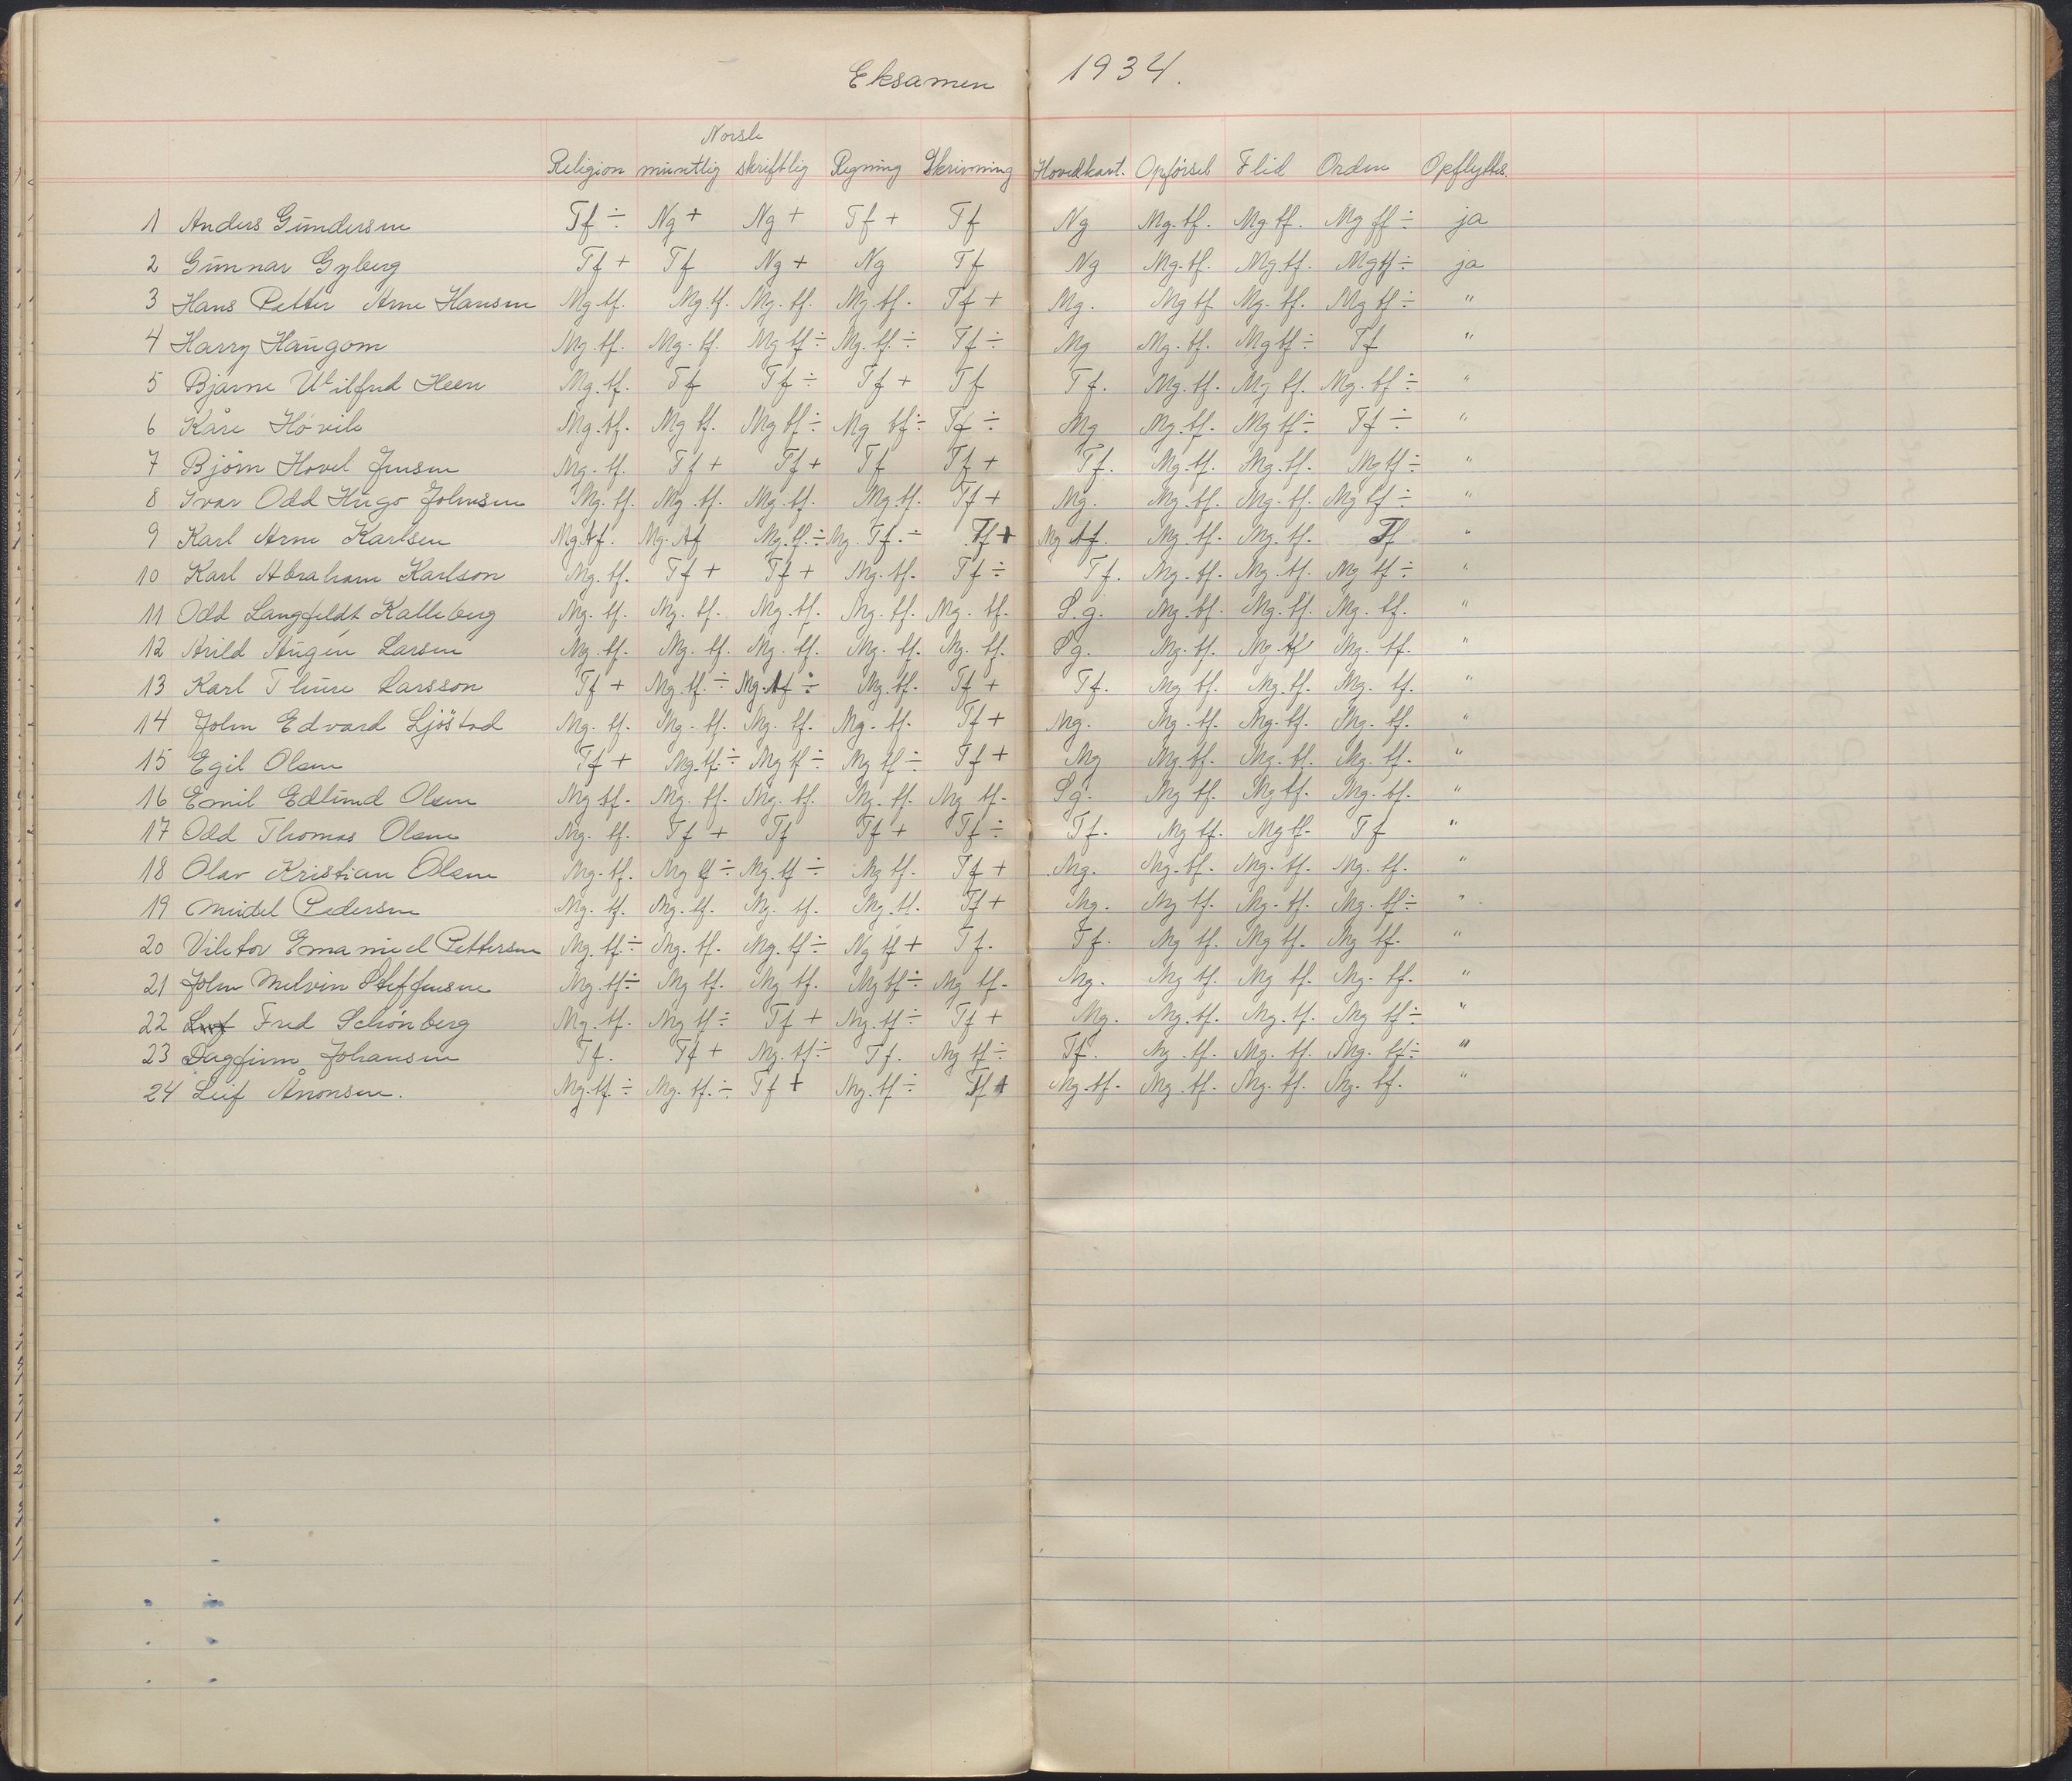 Eksamen 1934.
Norsk
Religion muntlig skriftlig Regning Skrivning Hovedkart. Opførsel Flid Orden Opflyttes.
1 Anders Gundersen Tf ÷ Ng + Ng + Tf + Tf Ng Mg. tf. Mg tf. Mg tf ÷ ja
2 Gunnar Gyberg Tf + Tf Ng + Ng Tf Ng Mg. tf. Mg tf. Mg tf ÷ ja
3 Hans Petter Arne Hansen Mg. tf. Mg tf. Mg. tf. Mg tf. Tf + Mg. Mg tf Mg. tf. Mg tf ÷ "
4 Harry Haugom Mg tf. Mg. tf. Mg tf ÷ Mg. tf. ÷ Tf ÷ Mg Mg. tf. Mg tf ÷ Tf "
5 Bjarne Wilfred Heen Mg. tf. Tf Tf ÷ Tf + Tf Tf. Mg. tf. Mg tf. Mg. tf ÷ "
6 Kåre Hövik Mg. tf. Mg tf. Mg tf ÷ Mg tf ÷ Tf ÷ Mg Mg. tf. Mg tf ÷ Tf ÷ "
7 Björn Hovel Jensen Mg. tf. Tf + Tf + Tf Tf + Tf. Mg. tf. Mg. tf. Mg tf ÷ "
8 Ivar Odd Hugo Johnsen Mg. tf. Mg. tf. Mg. tf. Mg. tf. Tf + Mg. Mg. tf. Mg. tf. Mg tf ÷ "
9 Karl Arne Karlsen Mg. tf. Mg. tf Mg. tf. ÷ Mg. Tf. ÷ Tf + Mg tf. Mg. tf. Mg. tf. Tf "
10 Karl Abraham Karlson Mg. tf. Tf + Tf + Mg. tf. Tf ÷ Tf. Mg. tf. Mg. tf. Mg tf ÷ "
11 Odd Langfeldt Kalleberg Mg. tf. Mg. tf. Mg. tf. Mg. tf. Mg. tf. S. g. Mg. tf. Mg. tf. Mg. tf. "
12 Arild Augen Larsen Mg. tf. Mg. tf. Mg. tf. Mg. tf. Mg. tf. Sg. Mg. tf. Mg. tf Mg. tf. "
13 Karl Thure Larsson Tf + Mg. tf. ÷ Mg. tf ÷ Mg. tf. Tf + Tf. Mg tf. Mg. tf. Mg. tf. "
14 John Edvard Ljöstad Mg. tf. Mg. tf. Mg. tf. Mg. tf. Tf + Mg. Mg. tf. Mg. tf. Mg. tf. "
15 Egil Olsen Tf + Mg. tf. ÷ Mg tf ÷ Mg tf ÷ Tf + Mg Mg. tf. Mg. tf. Mg. tf. "
16 Emil Edlund Olsen Mg tf. Mg. tf. Mg. tf. Mg. tf. Mg tf. Sg. Mg tf. Mg tf. Mg. tf. "
17 Odd Thomas Olsen Mg. tf. Tf + Tf Tf + Tf ÷ Tf. Mg tf. Mg tf. Tf "
18 Olav Kristian Olsen Mg. tf. Mg tf ÷ Mg. tf ÷ Mg tf. Tf + Mg. Mg. tf. Mg. tf. Mg. tf. "
19 Pedersen Mg. tf. Mg. tf. Mg. tf. Mg. tf. Tf + Mg. Mg tf. Mg. tf. Mg. tf ÷ "
20 Viktor Emanuel Pettersen Mg. tf. ÷ Mg. tf. Mg. tf ÷ Ng tf + Tf. Tf. Mg tf. Mg tf. Mg tf. "
21 John Melvin Steffensen Mg. tf ÷ Mg tf. Mg tf. Mg tf ÷ Mg tf. Mg. Mg tf. Mg tf. Mg. tf. "
22 Fred Schönberg Mg. tf. Mg tf ÷ Tf + Mg. tf ÷ Tf + Mg. Mg. tf. Mg. tf. Mg tf ÷ "
23 Dagfinn Johansen Tf. Tf + Mg. tf ÷ Tf. Mg tf ÷ Tf. Mg. tf. Mg. tf. Mg. tf ÷ "
24 Leif Åmonsen. Mg. tf. ÷ Mg. tf. ÷ Tf + Mg. tf ÷ Tf + Mg. tf. Mg. tf. Mg. tf. Mg. tf. "